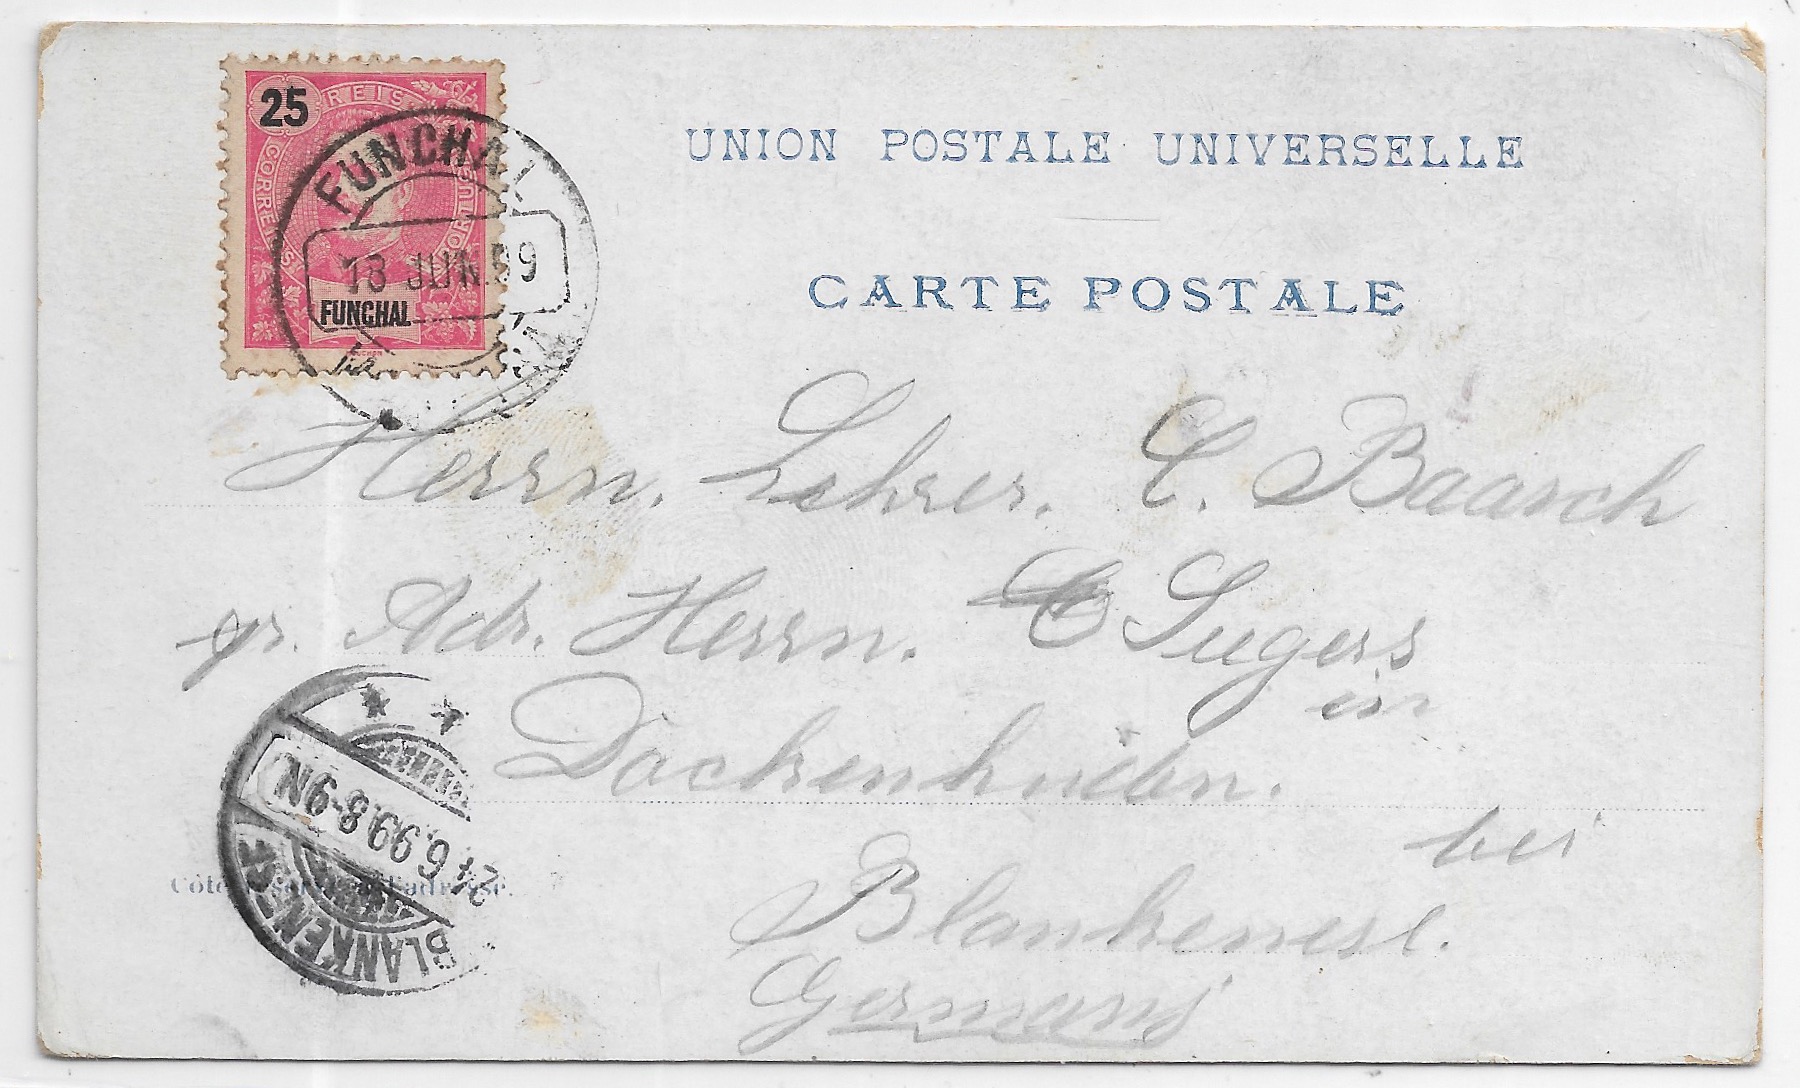 25
REIS
CORREIOS
FUNCHAL
FUNCHAL
13 JUN.99
UNION POSTALE UNIVERSELLE
CARTE POSTALE
Herrn. Lehrer. C. Baasch
pr. Adr. Herrn. C Siegers
in
Dockenhuden.
bei
Blankenese.
Germany
BLANKENESE
21.6.99.8-9N
Côté réservé à l'adresse.